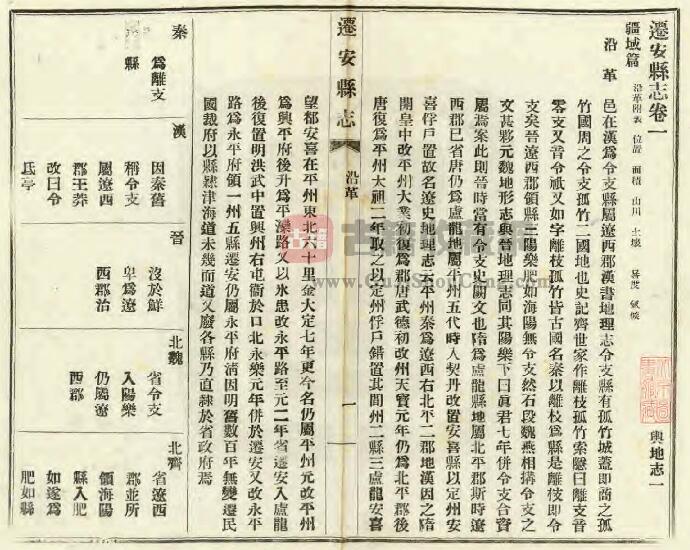 遷安縣志卷一
輿地志一
疆域篇
沿革附表 位置 面積 山川 土壤 晷度 氣候
沿革
邑在漢爲令支縣屬遼西郡漢書地理志令支縣有孤竹城蓋即商之孤
竹國周之令支孤竹二國地也史記齊世家作離枝孤竹索隱曰離支音
零支又音令祇又如字離枝孤竹皆古國名秦以離枝爲縣是離枝即令
支矣晉遼西郡領縣三陽樂肥如海陽無令支然石段魏燕相搆令支台
文甚夥元魏地形志與晉地理志同其陽樂下曰眞君七年併令支合資
屬焉案此則晉時當有令支史闕文也隋爲盧龍縣地屬北平郡斯時遼
西郡已省唐仍爲盧龍地屬平州五代時入契丹改置安喜縣以定州安
喜俘戶置故名遼史地理志云平州秦爲遼西右北平二郡地漢因之隋
開皇中改平州大業初復爲郡唐武德初改州天寶元年仍爲北平郡後
唐復爲平州太祖二年取之以定州俘戶錯置其間州二縣三盧龍安喜
遷安縣志
沿革
一
望都安喜在平州東北六十里金大定七年更今名仍屬平州元改平州
爲興平府後升爲平灤路又以水患改永平路至元二年省遷安入盧龍
後復置明洪武中置興州右屯衞於口北永樂元年併於遷安又改永平
路爲永平府領一州五縣遷安仍屬永平府清因明舊數百年無變遷民
國裁府以縣隸津海道未幾而道又廢各縣乃直隸於省政府焉
秦
爲離支
縣
漢
因秦舊
稱令支
屬遼西
郡王莽
改曰令
氐亭
晉
沒於鮮
卑爲遼
西郡治
北魏
省令支
入陽樂
仍屬遼
西郡
北齊
省遼西
郡並所
領海陽
縣入肥
如遂爲
肥如縣
古籍
www.GujiShuCang.com